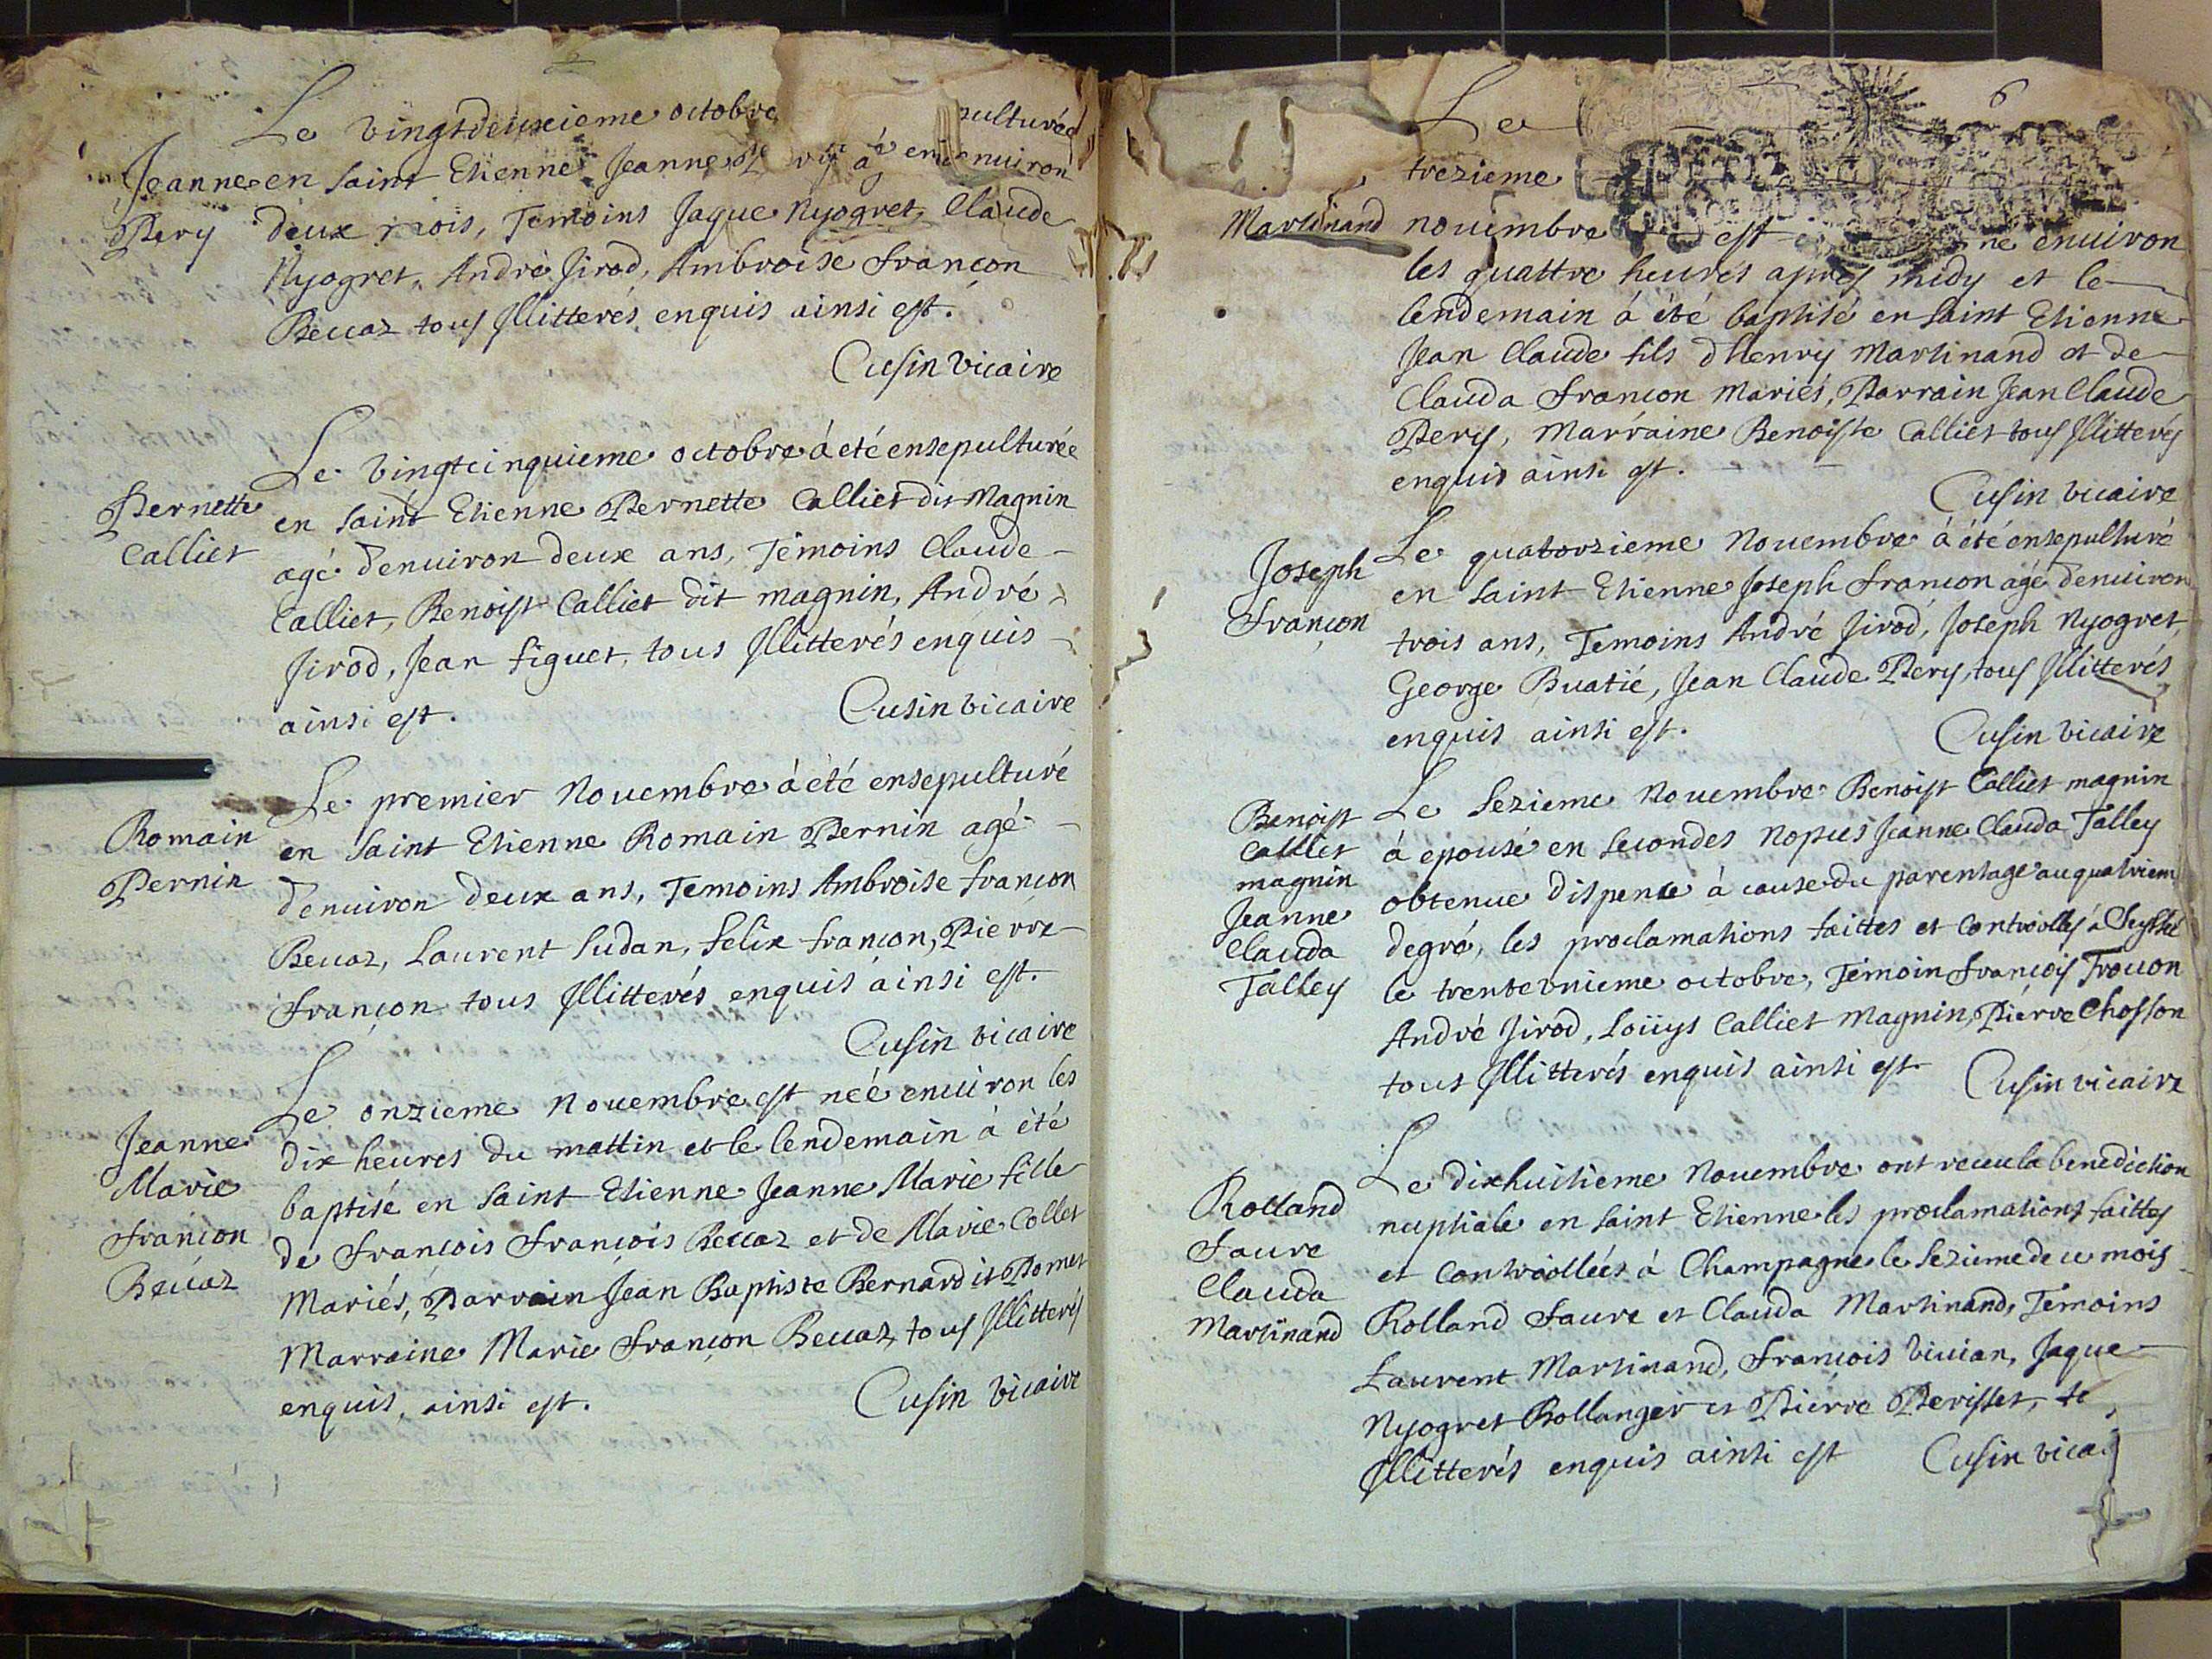 Le vingtdeuxieme octobre pulturée
Jeanne
Pery
en saint Etienne Jeanne enuiron
deux mois, Temoins Jaque Nyogret, Claude
Nyogret, André Jirod, Ambroise françon
Beuaz tous Jllitterés enquis ainsi est.
Cusin vicaire
Pernette
Calliet
Le vingtcinquieme octobre à été ensepulturée
en saint Etienne Pernette Calliet dit Magnin
agé denuiron deux ans, Témoins Claude
Calliet, Benoist Calliet dit magnin, André
Jirod, Jean figuet, tous Jllitterés enquis
ainsi est.
Cusin vicaire
Romain
Pernin
Le premier Nouembre à été ensepulturé
en saint Etienne Romain Pernin agé
denuiron deux ans, Temoins Ambroise françon
Beuaz, Laurent Sudan, felix françon, Pierre
françon tous Jllitterés enquis ainsi est.
Cusin vicaire
Jeanne
Marie
françon
Beuaz
Le onzieme Nouembre est néé enuiron les
dix heures du mattin et le lendemain à été
baptisé en saint Etienne Jeanne Marie fille
de François François Beuaz et de Marie Collet
Mariés, Parrain Jean Baptiste Bernard it Pomet
Marraine Marie françon Beuaz, tous Jllitterés
enquis, ainsi est.
Cusin vicaire
6
Martinand
Le
trezieme
nouimbre est né enuiron
les quattre heures apres midy et le
lendemain à été baptisé en saint Etienne
Jean Claude fils dhenry Martinand et de
Clauda françon Mariés, Parrain Jean Claude
Pery, Marraine Benoiste Calliet tous Jllitterés
enquis ainsi est.
Cusin vicaire
Joseph
françon
Le quatorzieme Nouembre à été ensepulturé
en saint Etienne Joseph françon agé denuiron
trois ans, Temoins André Jirod, Joseph Nyogret,
George Buatié, Jean Claude Pery, tous Jllitterés
enquis ainsi est.
Cusin vicaire
Benoist
Calliet
magnin
Jeanne
Clauda
Talley
Le sezieme Nouembre Benoist Calliet magnin
à epousé en secondes Nopces Jeanne Clauda Talley
obtenue dispence à cause du parentage au quatriem
degré, les proclamations faittes et controollés à Seyssel
le trentevnieme octobre, Témoin françois Trouon
André Jirod, Loüys Calliet Magnin, Pierre Chosson
tous Jllitterés enquis ainsi est
Cusin vicaire
Rolland
faure
Clauda
Martinand
Le dixhuitieme Nouembre ont receu la benediction
nuptiale en saint Etienne les proclamations faittes
et controollées à Champagne le sezieme de ce mois
Rolland faure et Clauda Martinand, Témoins
Laurent Martinand, François Viuian, Jaque
Nyogret Bollanger et Pierre Perisset, to
Jllitterés enquis ainsi est
Cusin vica